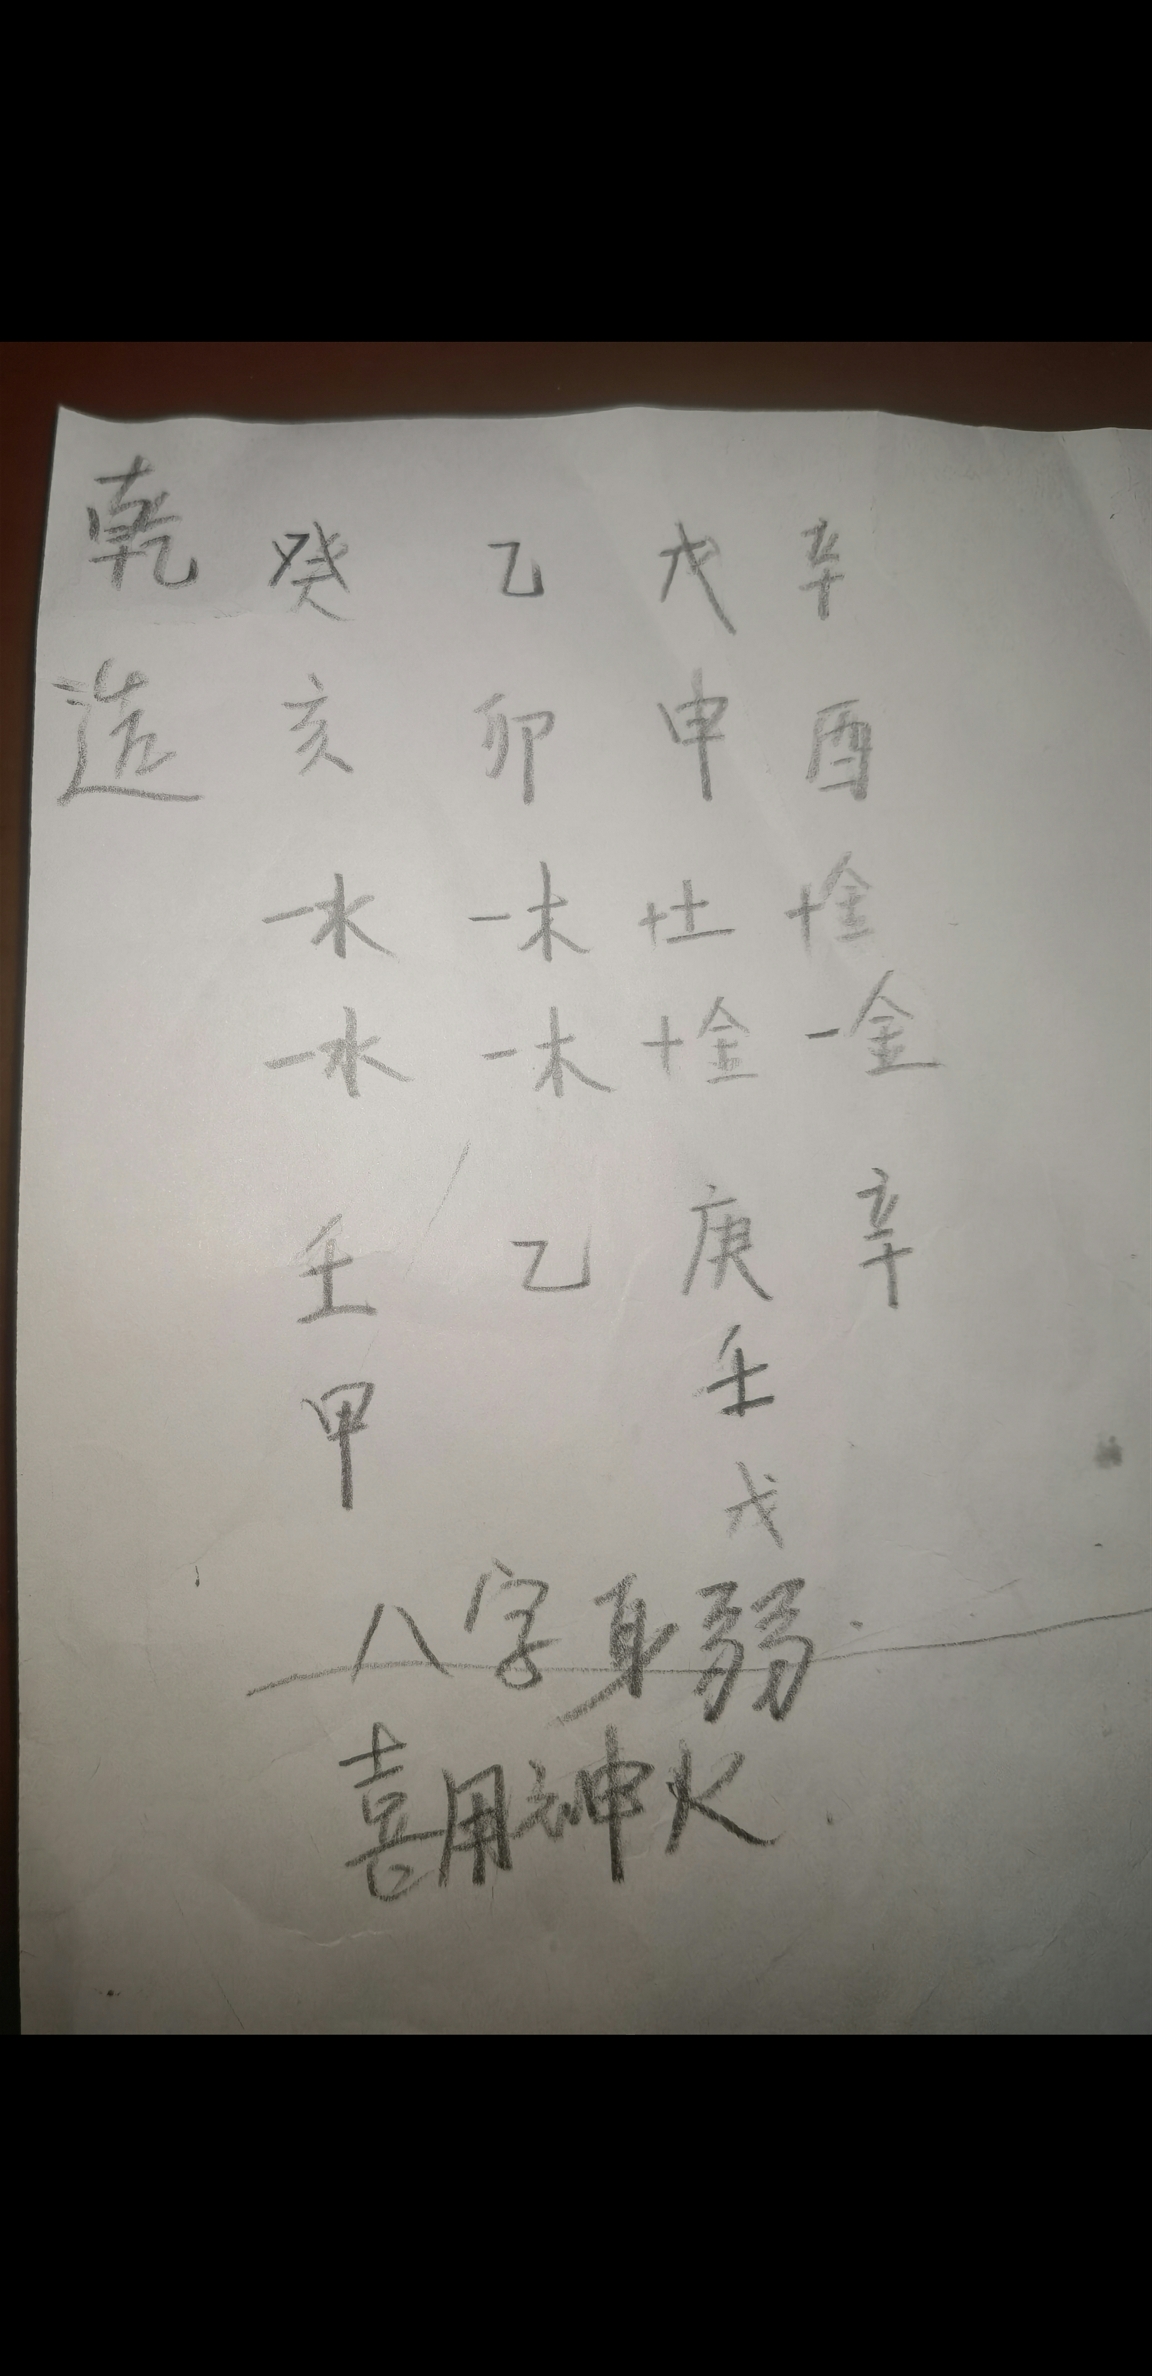 乾造
癸 乙 戊 辛
亥 卯 申 酉
一水 一木 +土 +金
一水 一木 +金 一金
壬 乙 庚 辛
甲 壬
戊
八字身弱.
喜用神火.